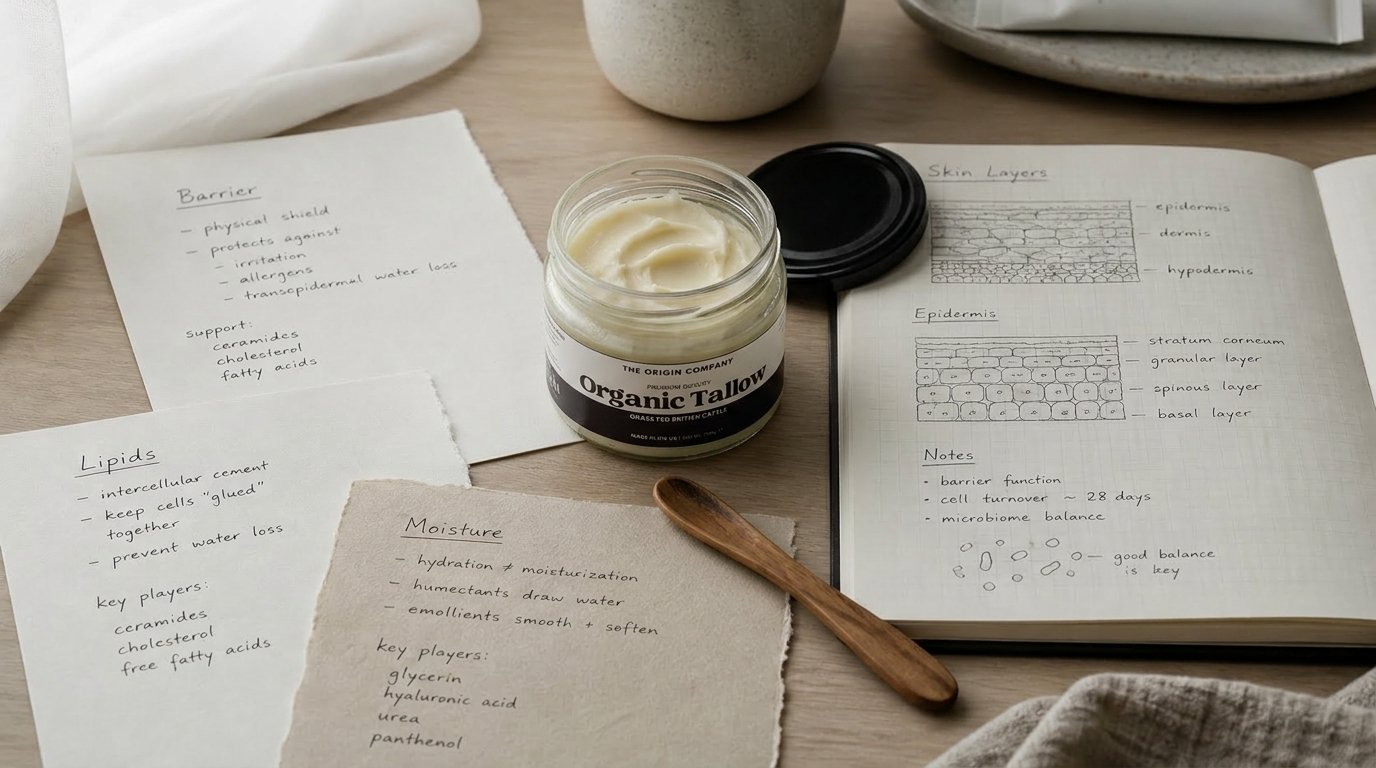 Barrier
- physical shield
- protects against
- irritation
- allergens
- transepidermal water loss
support:
ceramides
cholesterol
fatty acids
Lipids
- intercellular cement
- keep cells "glued"
together
- prevent water loss
key players:
ceramides
cholesterol
free fatty acids
Moisture
- hydration ≠ moisturization
- humectants draw water
- emollients smooth + soften
key players:
glycerin
hyaluronic acid
urea
panthenol
THE ORIGIN COMPANY
Organic Tallow
Skin Layers
- epidermis
- dermis
- hypodermis
Epidermis
- stratum corneum
- granular layer
- spinous layer
- basal layer
Notes
· barrier function
· cell turnover ~ 28 days
· microbiome balance
- good balance
is key